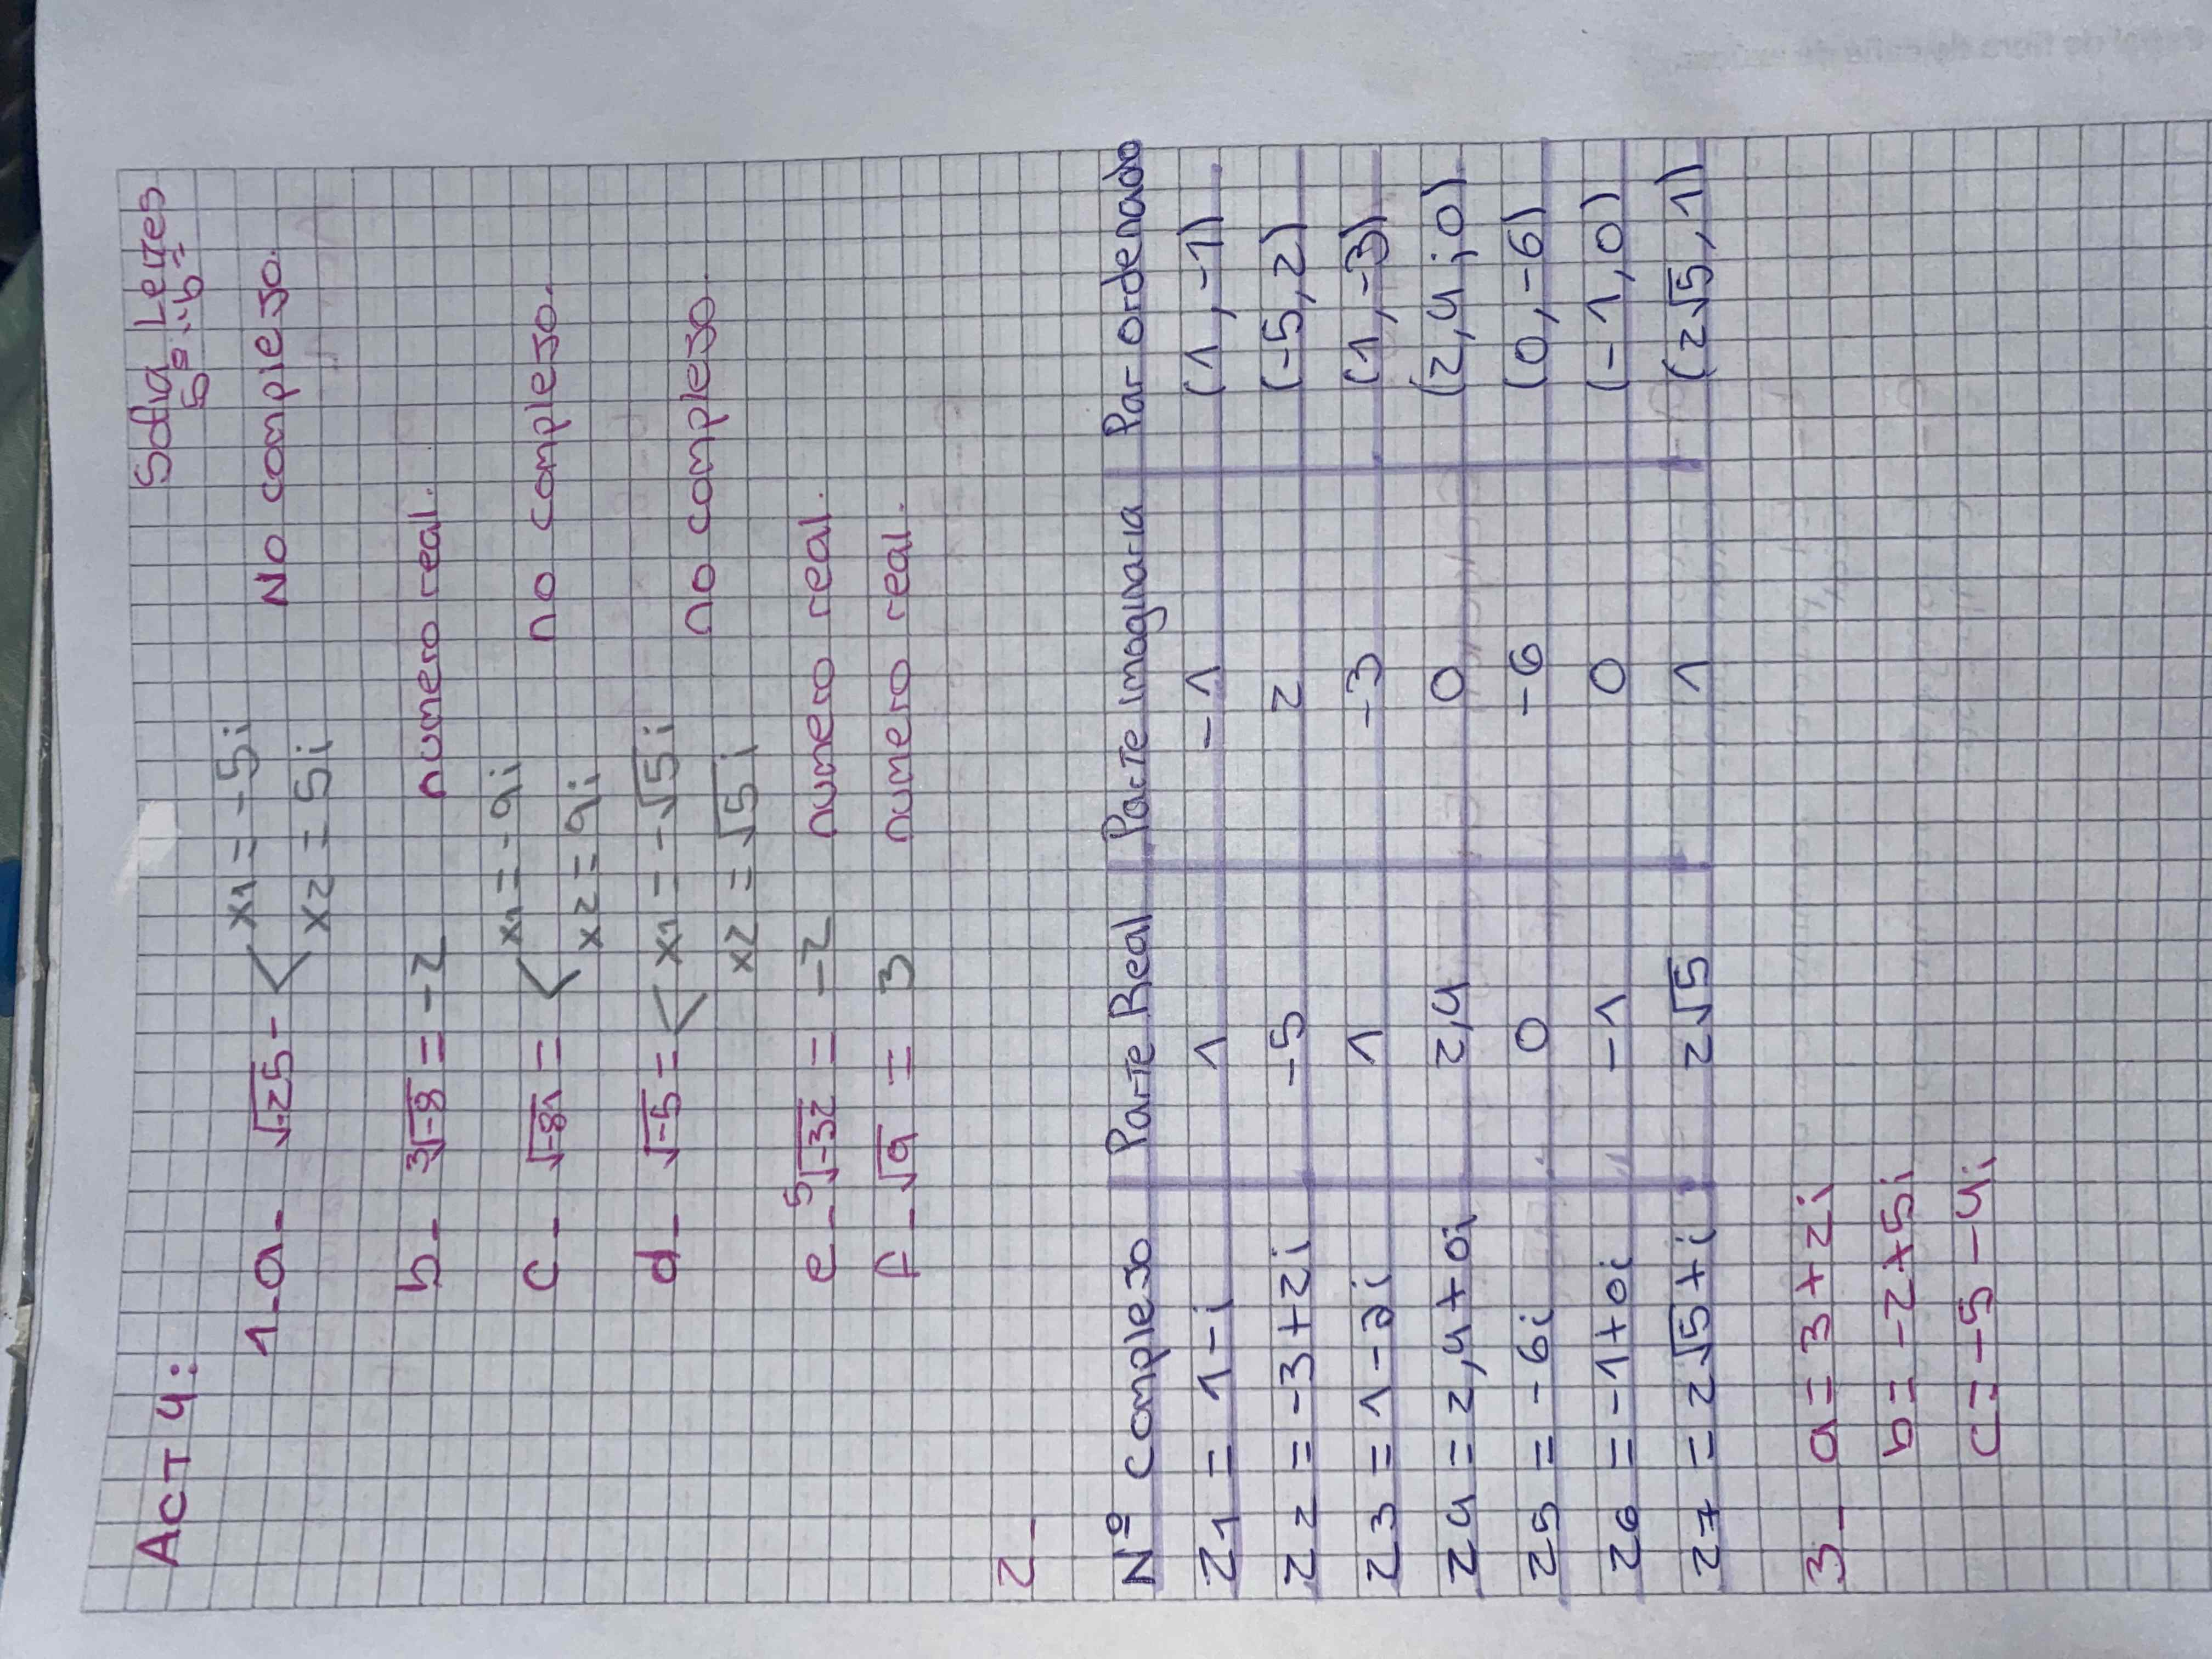 Sofia Leyes
Act 4: 5º "b"
x1 = -5i
1_a_ √-25 - < No complejo.
x2 = 5i
b_ ³√-8 = -2 numero real.
x1 = -9i
c_ √-81 = < no complejo.
x2 = 9i
d_ √-5 = < x1 = -√5 i no complejo.
x2 = √5 i
e_ ⁵√-32 = -2 numero real.
f_ √9 = 3 numero real.
2_
Nº Complejo Parte Real Parte Imaginaria Par ordenado
Z1 = 1-i 1 -1 (1,-1)
Z2 = -3+2i -5 2 (-5,2)
Z3 = 1-3i 1 -3 (1,-3)
Z4 = 2,4+0i 2,4 0 (2,4;0)
Z5 = -6i 0 -6 (0,-6)
Z6 = -1+0i -1 0 (-1,0)
Z7 = 2√5+i 2√5 1 (2√5,1)
3_ a = 3+2i
b = -2+5i
c = -5-4i